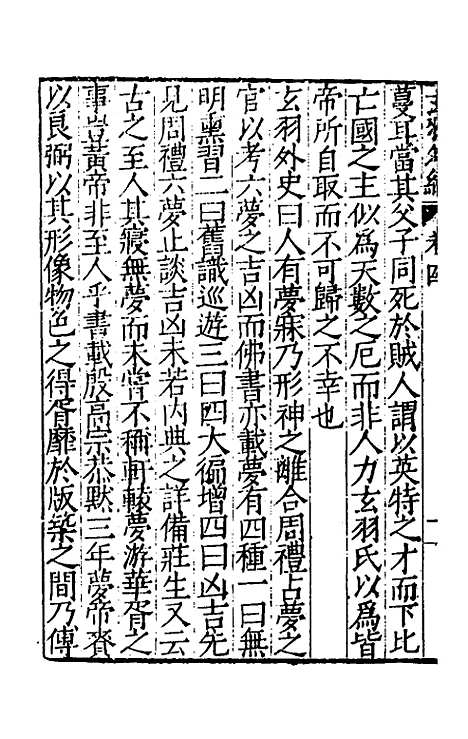 卷四
蔓耳當其父子同死於賊人謂以英特之才而下比
亡國之主似爲天數之厄而非人力玄羽氏以爲皆
帝所自取而不可歸之不幸也
玄羽外史曰人有夢寐乃形神之離合周禮占夢之
官以考六夢之吉凶而佛書亦載夢有四種一曰無
明熏習二曰舊識巡遊三曰四大徧增四曰凶吉先
見周禮六夢止談吉凶未若内典之詳備莊生又云
古之至人其寢無夢而未嘗不稱軒轅夢游華胥之
事豈黃帝非至人乎書載殷高宗恭默三年夢帝賚
以良弼以其形像物色之得胥靡於版築之間乃傅